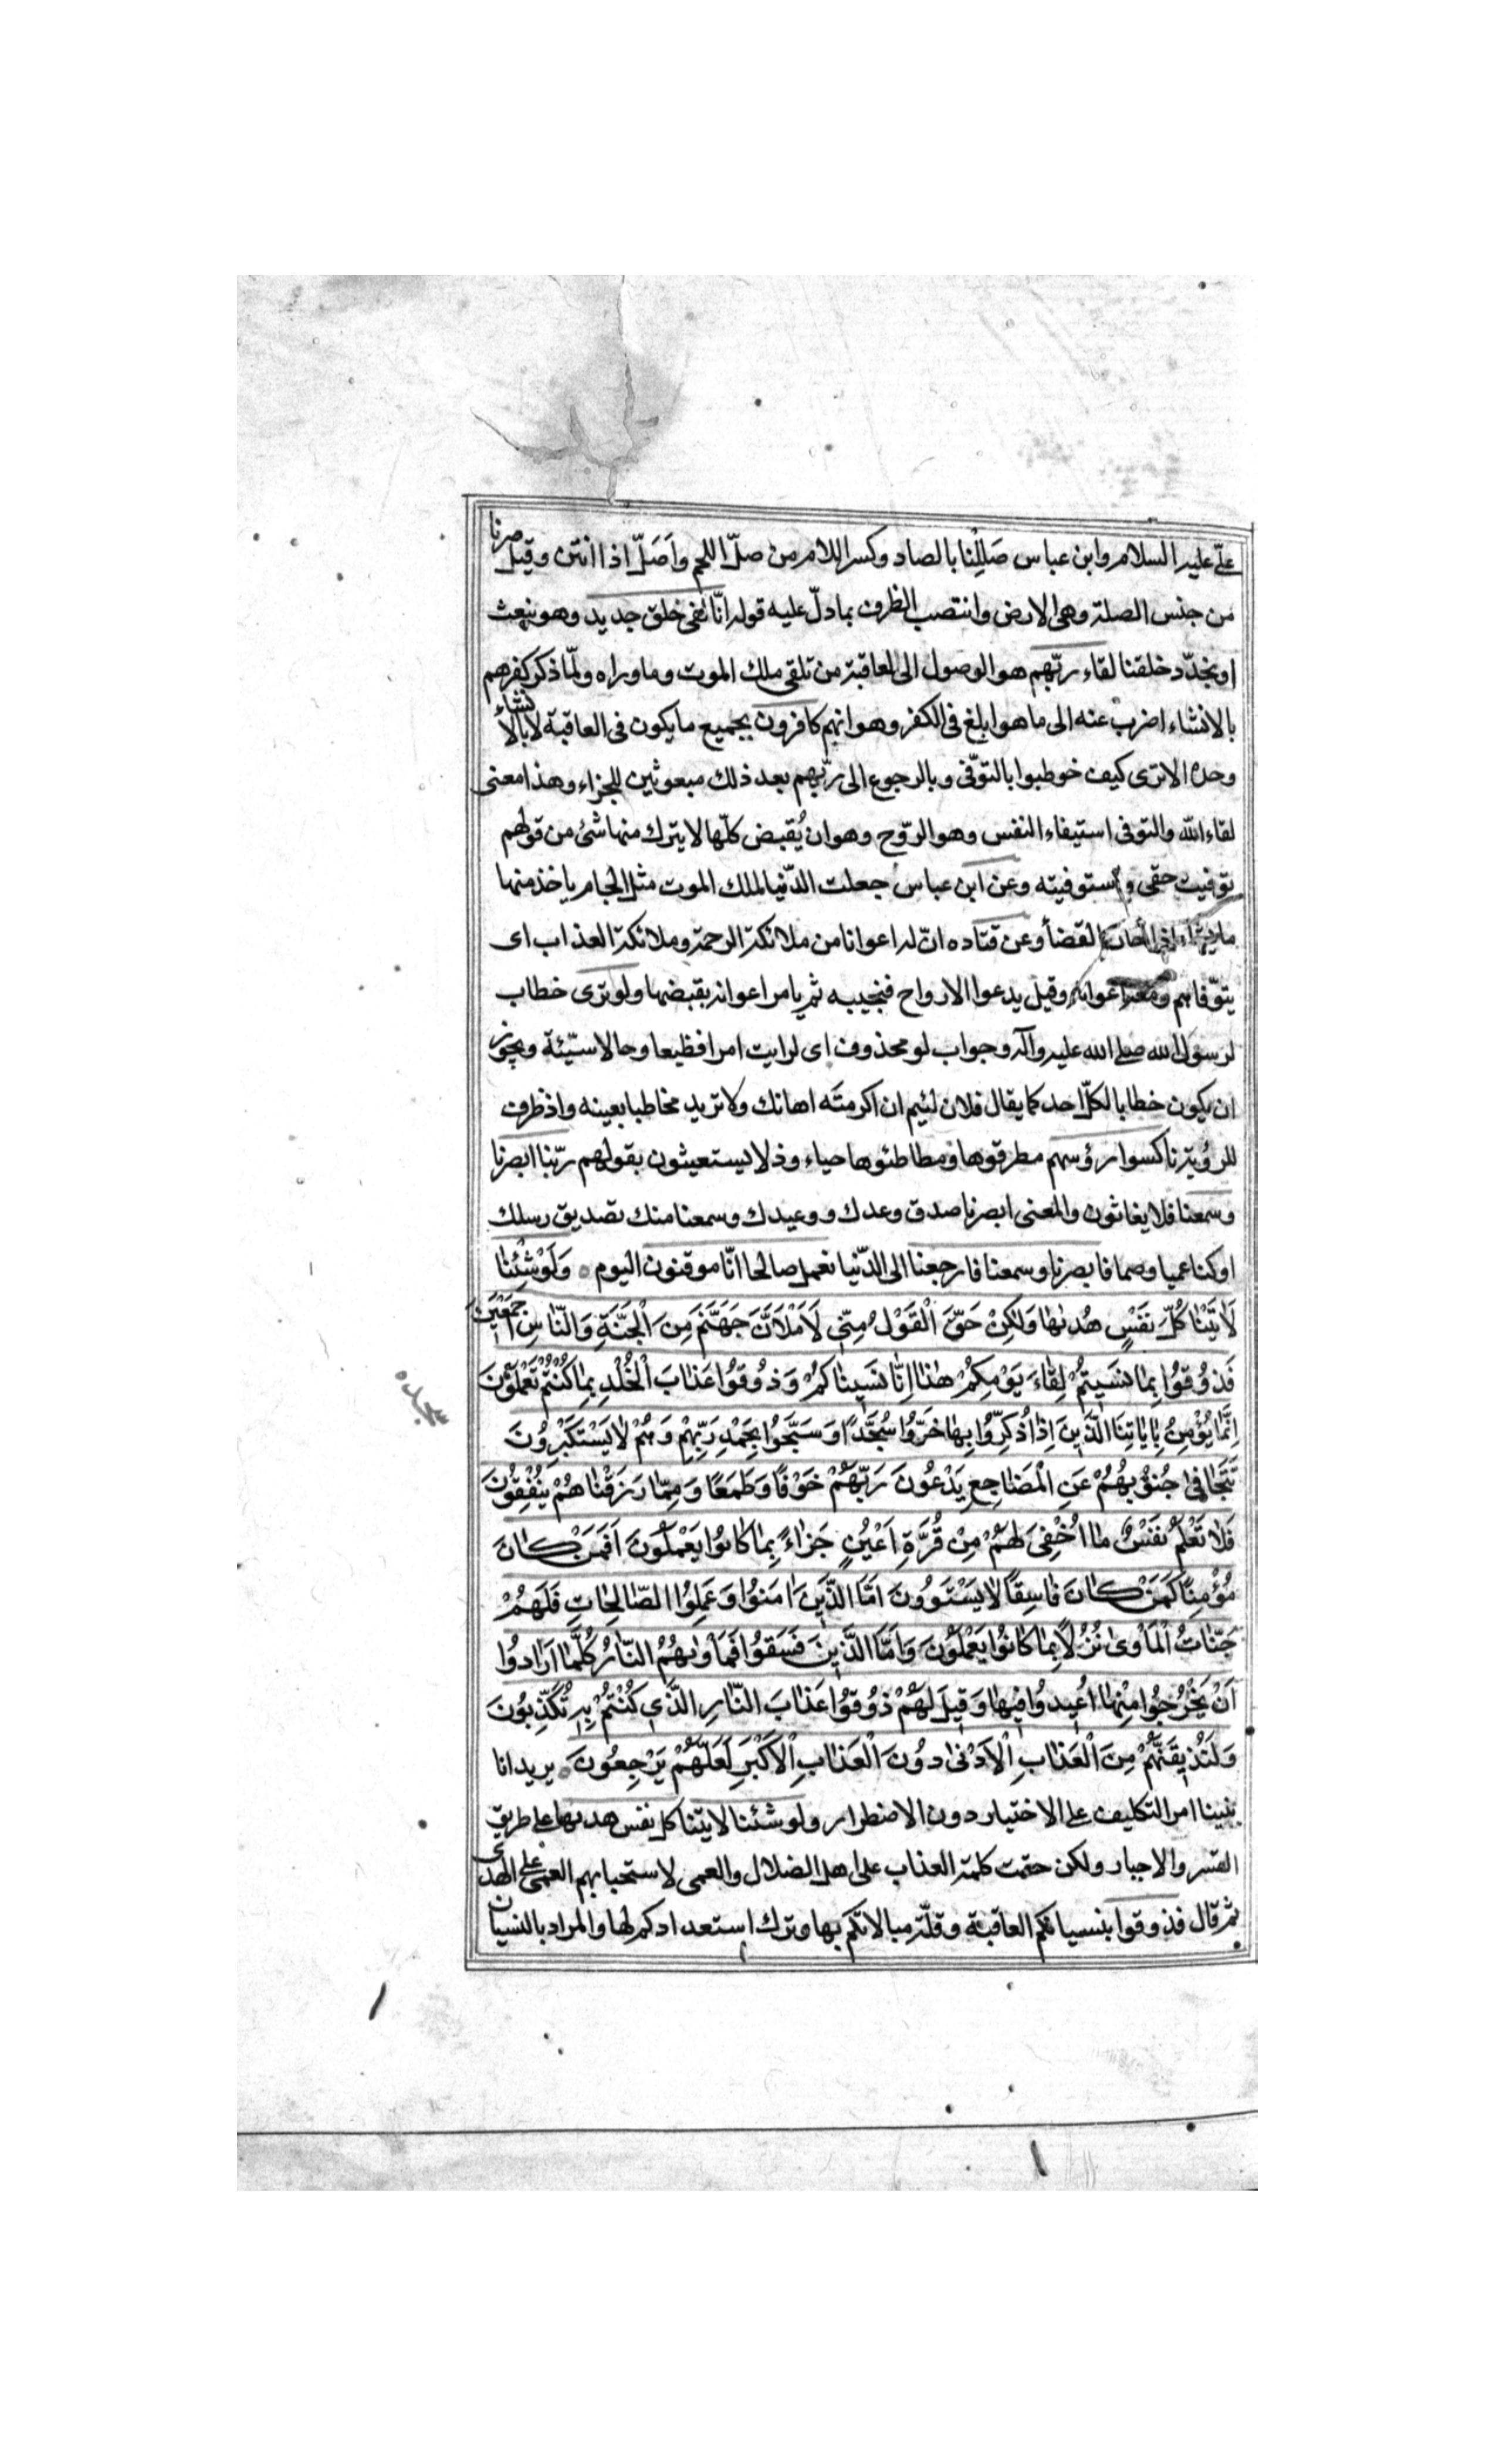 علىّ عليه السلام وابن عباس صَلِلْنا بالصاد وكسر اللام من صلّ اللحم واَصَلّ اذا انتن وقيل صرنا
من جنس الصلة وهى الارض وانتصب الظرف بما دلّ عليه قوله انّا لفى خلق جديد وهو نبعث
او يجدّد خلقنا لقاء ربّهم هو الوصول الى العاقبة من تلقى ملك الموت وما وراه ولمّا ذكر كفرهم
بالانشاء اضرب عنه الى ما هو ابلغ فى الكفر وهو انهم كافرون بجميع ما يكون فى العاقبة لا بالانشاء
وحده الا ترى كيف خوطبوا بالتوفّى وبالرجوع الى ربّهم بعد ذلك مبعوثين للجزاء وهذا معنى
لقاء الله والتوفى استيفاء النفس وهو الروّح وهو ان يُقبض كلّها لا يترك منها شئ من قولهم
توفيت حقى واستوفيته وعن ابن عباس جعلت الدّنيا لملك الموت مثل الجام ياخذ منها
ما يشاء اذا القضأ وعن قتاده انّ له اعوانا من ملائكة الرحمة وملائكة العذاب اى
يتوّفاهم ومعه اعوانه وقيل يدعوا الارواح فتجيبه ثم يامر اعوانه بقبضها ولو ترى خطاب
لرسول الله صلى الله عليه وآله وجواب لو محذوف اى لرايت امرا فظيعا وحالا سيّئة ويجوز
ان يكون خطابا لكلّ احد كما يقال فلان لئيم ان اكرمته اهانك ولا تريد مخاطبا بعينه واذ ظرف
للرؤية ناكسوا رؤسهم مطرقوها ومطاطئوها حياء وذلا يستغيثون بقولهم ربّنا ابصرنا
وسمعنا فلا يغاثون والمعنى ابصرنا صدق وعدك ووعيدك وسمعنا منك تصديق رسلك
او كنا عميا وصما فابصرنا وسمعنا فارجعنا الى الدّنيا نعمل صالحا انّا موقنون اليوم وَلَوْ شِئْنٰا
لَاٰتَيْنٰا كُلَّ نَفْسٍ هُدٰىهٰا وَلٰكِنْ حَقَّ الْقَوْلُ مِنّى لَاَمْلَاَنَّ جَهَنَّمَ مِنَ الْجِنَّةِ وَالنّٰاسِ اَجْمَعٖينَ
فَذُوقُوا بِمٰا نَسٖيتُمْ لِقٰاءَ يَوْمِكِمْ هٰذٰا اِنّٰا نَسٖينٰاكُمْ وَذُوقُوا عَذٰابَ الْخُلْدِ بِمٰا كُنْتُمْ تَعْمَلُونَ
اِنَّمٰا يُؤْمِنُ بِاٰيٰاتِنَا الَّذٖينَ اِذٰا ذُكِّرُوا بِهٰا خَرُّوا سُجَّدًا وَسَبَّحُوا بِحَمْدِ رَبِّهِمْ وَهُمْ لٰا يَسْتَكْبِرُونَ
تَتَجٰافىٰ جُنُوبُهُمْ عَنِ الْمَضٰاجِعِ يَدْعُونَ رَبَّهُمْ خَوْفًا وَطَمَعًا وَمِمّٰا رَزَقْنٰاهُمْ يُنْفِقُونَ
فَلٰا تَعْلَمُ نَفْسٌ مٰا اُخْفِىَ لَهُمْ مِنْ قُرَّةِ اَعْيُنٍ جَزٰاءً بِمٰا كٰانُوا يَعْمَلُونَ اَفَمَنْ كٰانَ
مُؤْمِنًا كَمَنْ كٰانَ فٰاسِقًا لٰا يَسْتَوُونَ اَمَّا الَّذٖينَ اٰمَنُوا وَعَمِلُوا الصّٰالِحٰاتِ فَلَهُمْ
جَنّٰاتُ الْمَأْوىٰ نُزُلًا بِمٰا كٰانُوا يَعْمَلُونَ وَاَمَّا الَّذٖينَ فَسَقُوا فَمَأْوٰىهُمُ النّٰارُ كُلَّمٰا اَرٰادُوا
اَنْ يَخْرُجُوا مِنْهٰا اُعٖيدُوا فٖيهٰا وَقٖيلَ لَهُمْ ذُوقُوا عَذٰابَ النّٰارِ الَّذٖى كُنْتُمْ بِهٖ تُكَذِّبُونَ
وَلَنُذٖيقَنَّهُمْ مِنَ الْعَذٰابِ الْاَدْنىٰ دُونَ الْعَذٰابِ الْاَكْبَرِ لَعَلَّهُمْ يَرْجِعُونَ يريد انا
بنينا امر التكليف على الاختيار دون الاضطرار ولو شئنا لاتينا كل نفس هديها على طريق
القسر والاجبار ولكن حقت كلمة العذاب على اهل الضلال والعمى لاستحبابهم العمى على الهدى
ثم قال فذوقوا بنسيانكم العاقبة وقلّة مبالاتكم بها وترك استعدادكم لها والمراد بالنسيان
سجده